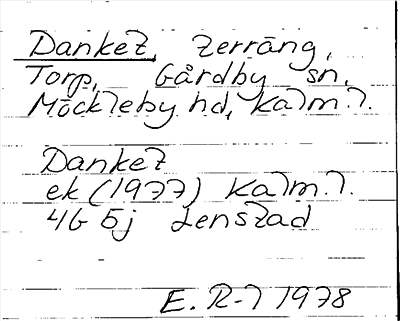 Danket, terräng,
Torp, Gårdby sn,
Möckleby hd, Kalm. l.
Danket
ek (1977) Kalm. l.
4G 5j Lenstad
E. R-l 1978